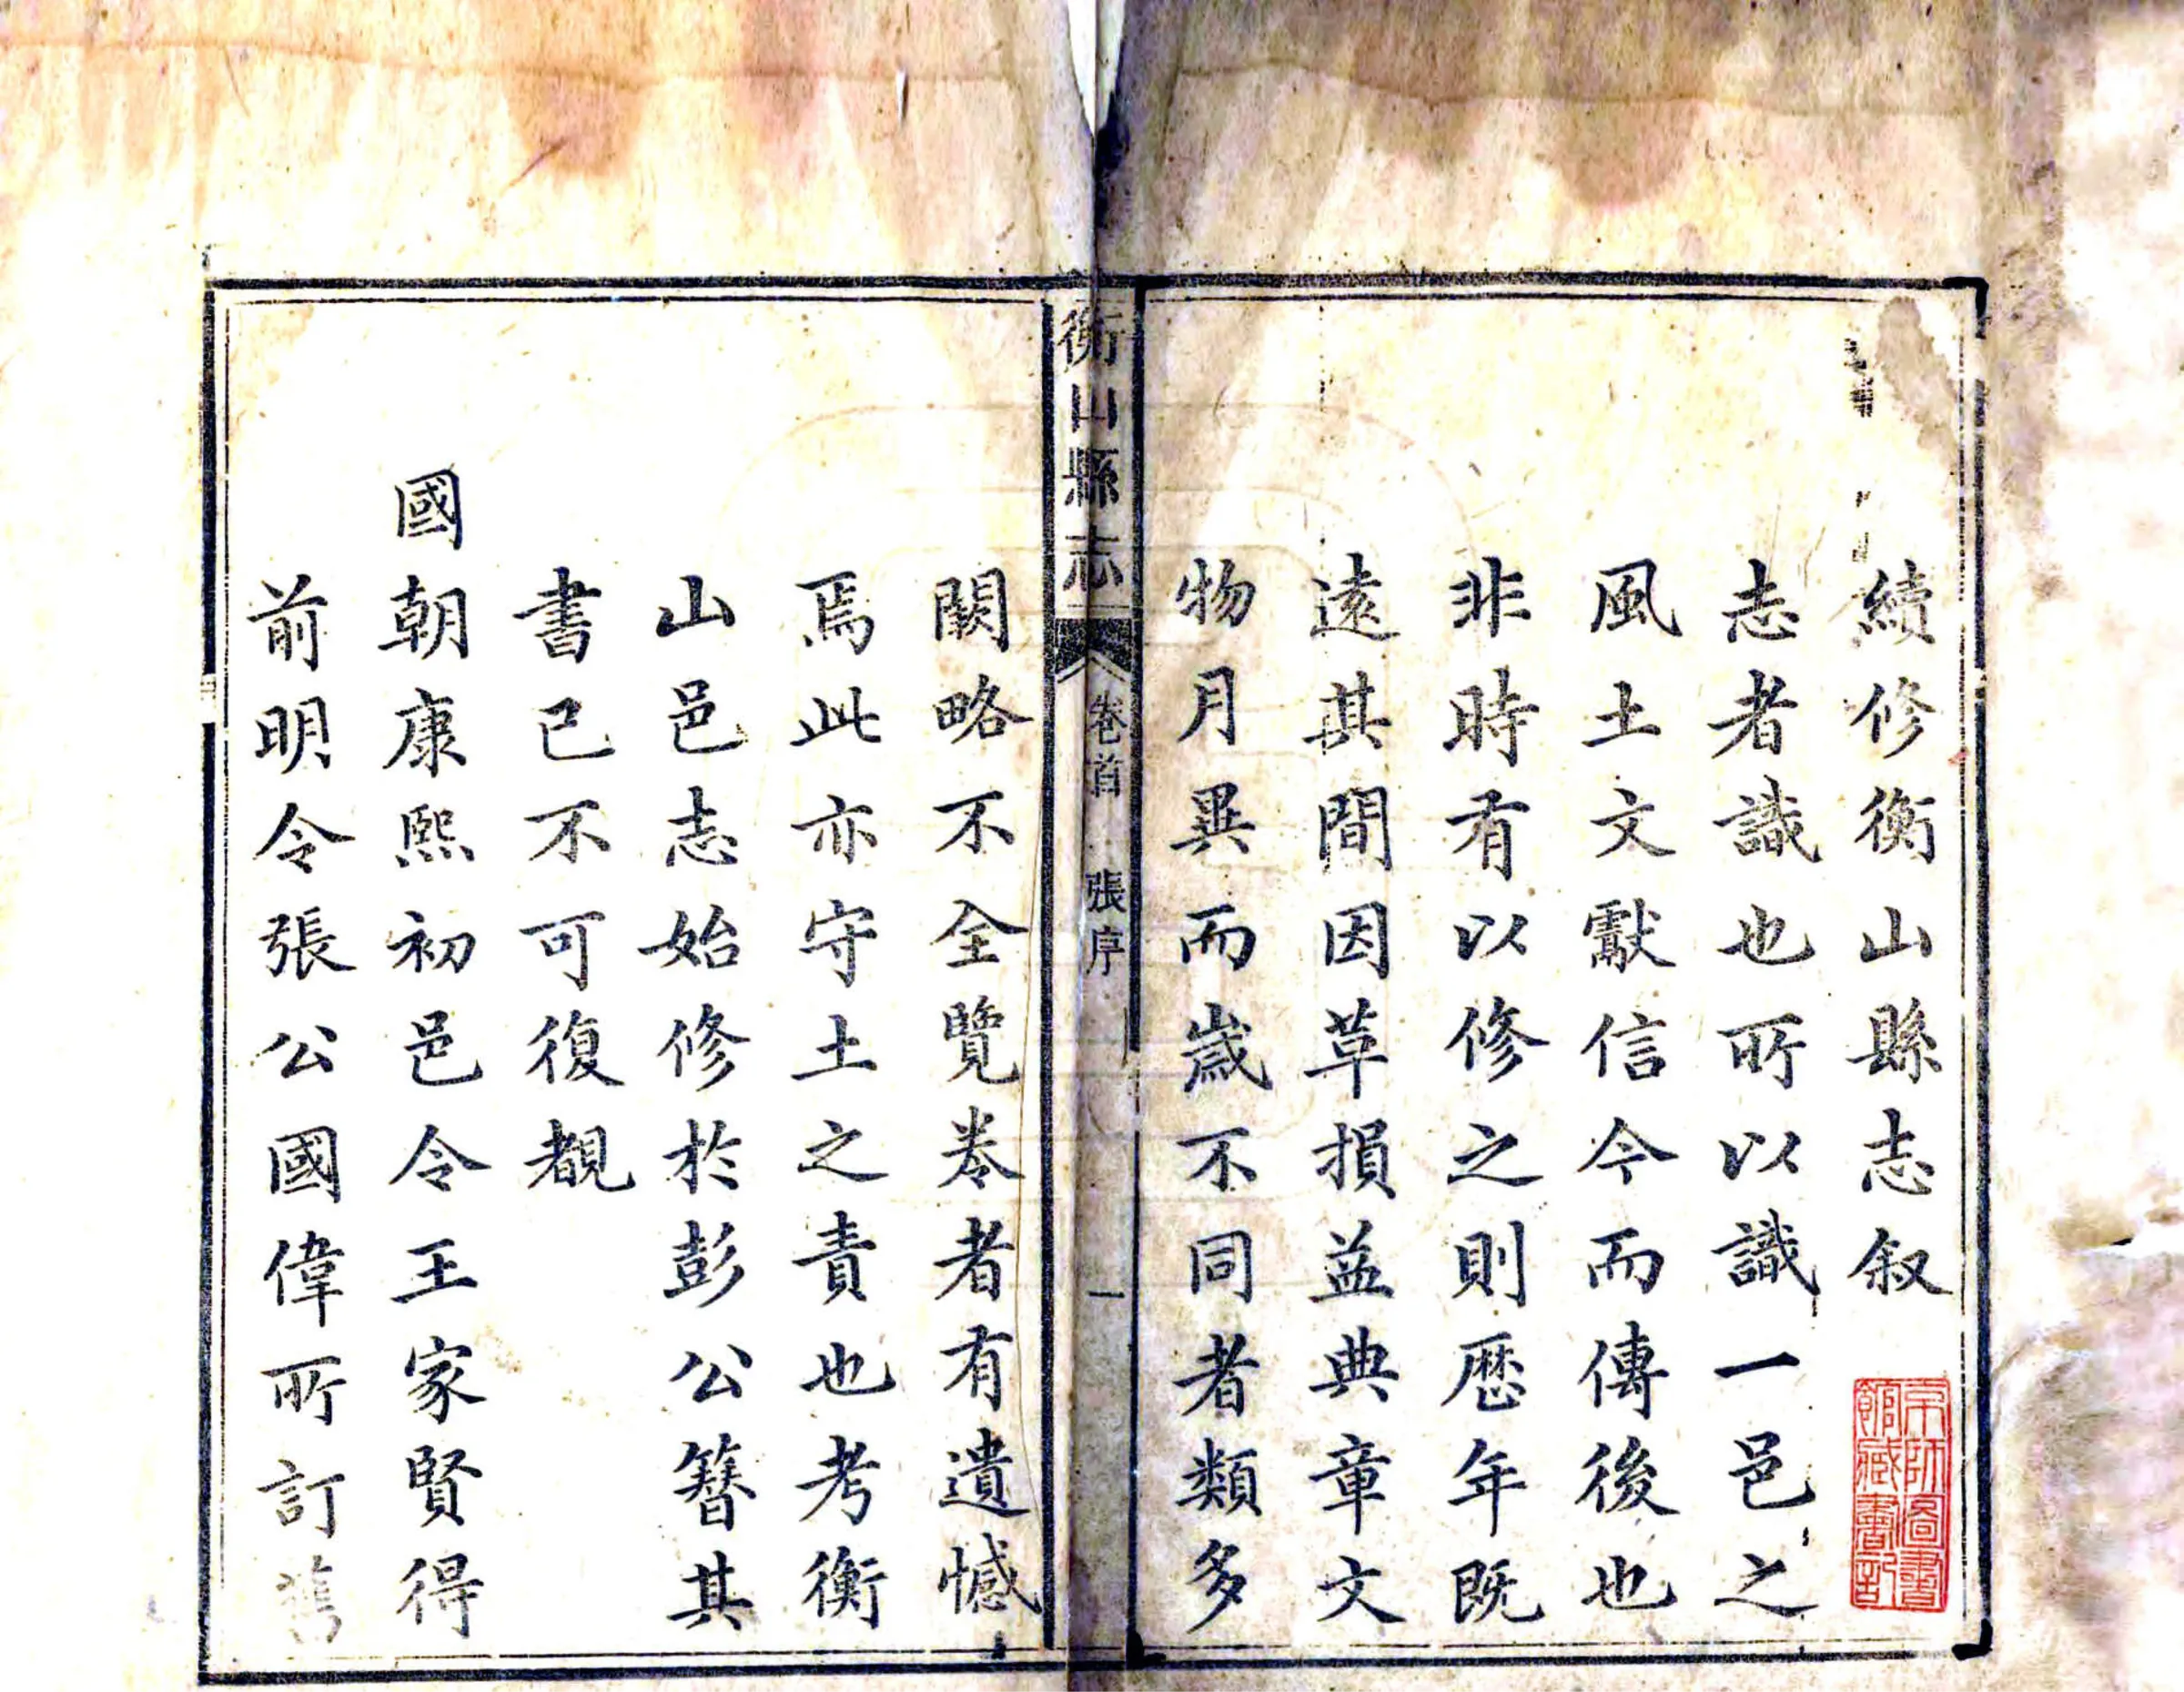 續修衡山縣志叙
志者識也所以識一邑之
風土文獻信今而傳後也
非時有以修之則歷年既
遠其間因革損益典章文
物月異而歲不同者類多
衡山縣志 卷首 張序 一
闕略不全覽卷者有遺憾
焉此亦守土之責也考衡
山邑志始修於彭公簪其
書已不可復覩
國朝康熙初邑令王家賢得
前明令張公國偉所訂舊